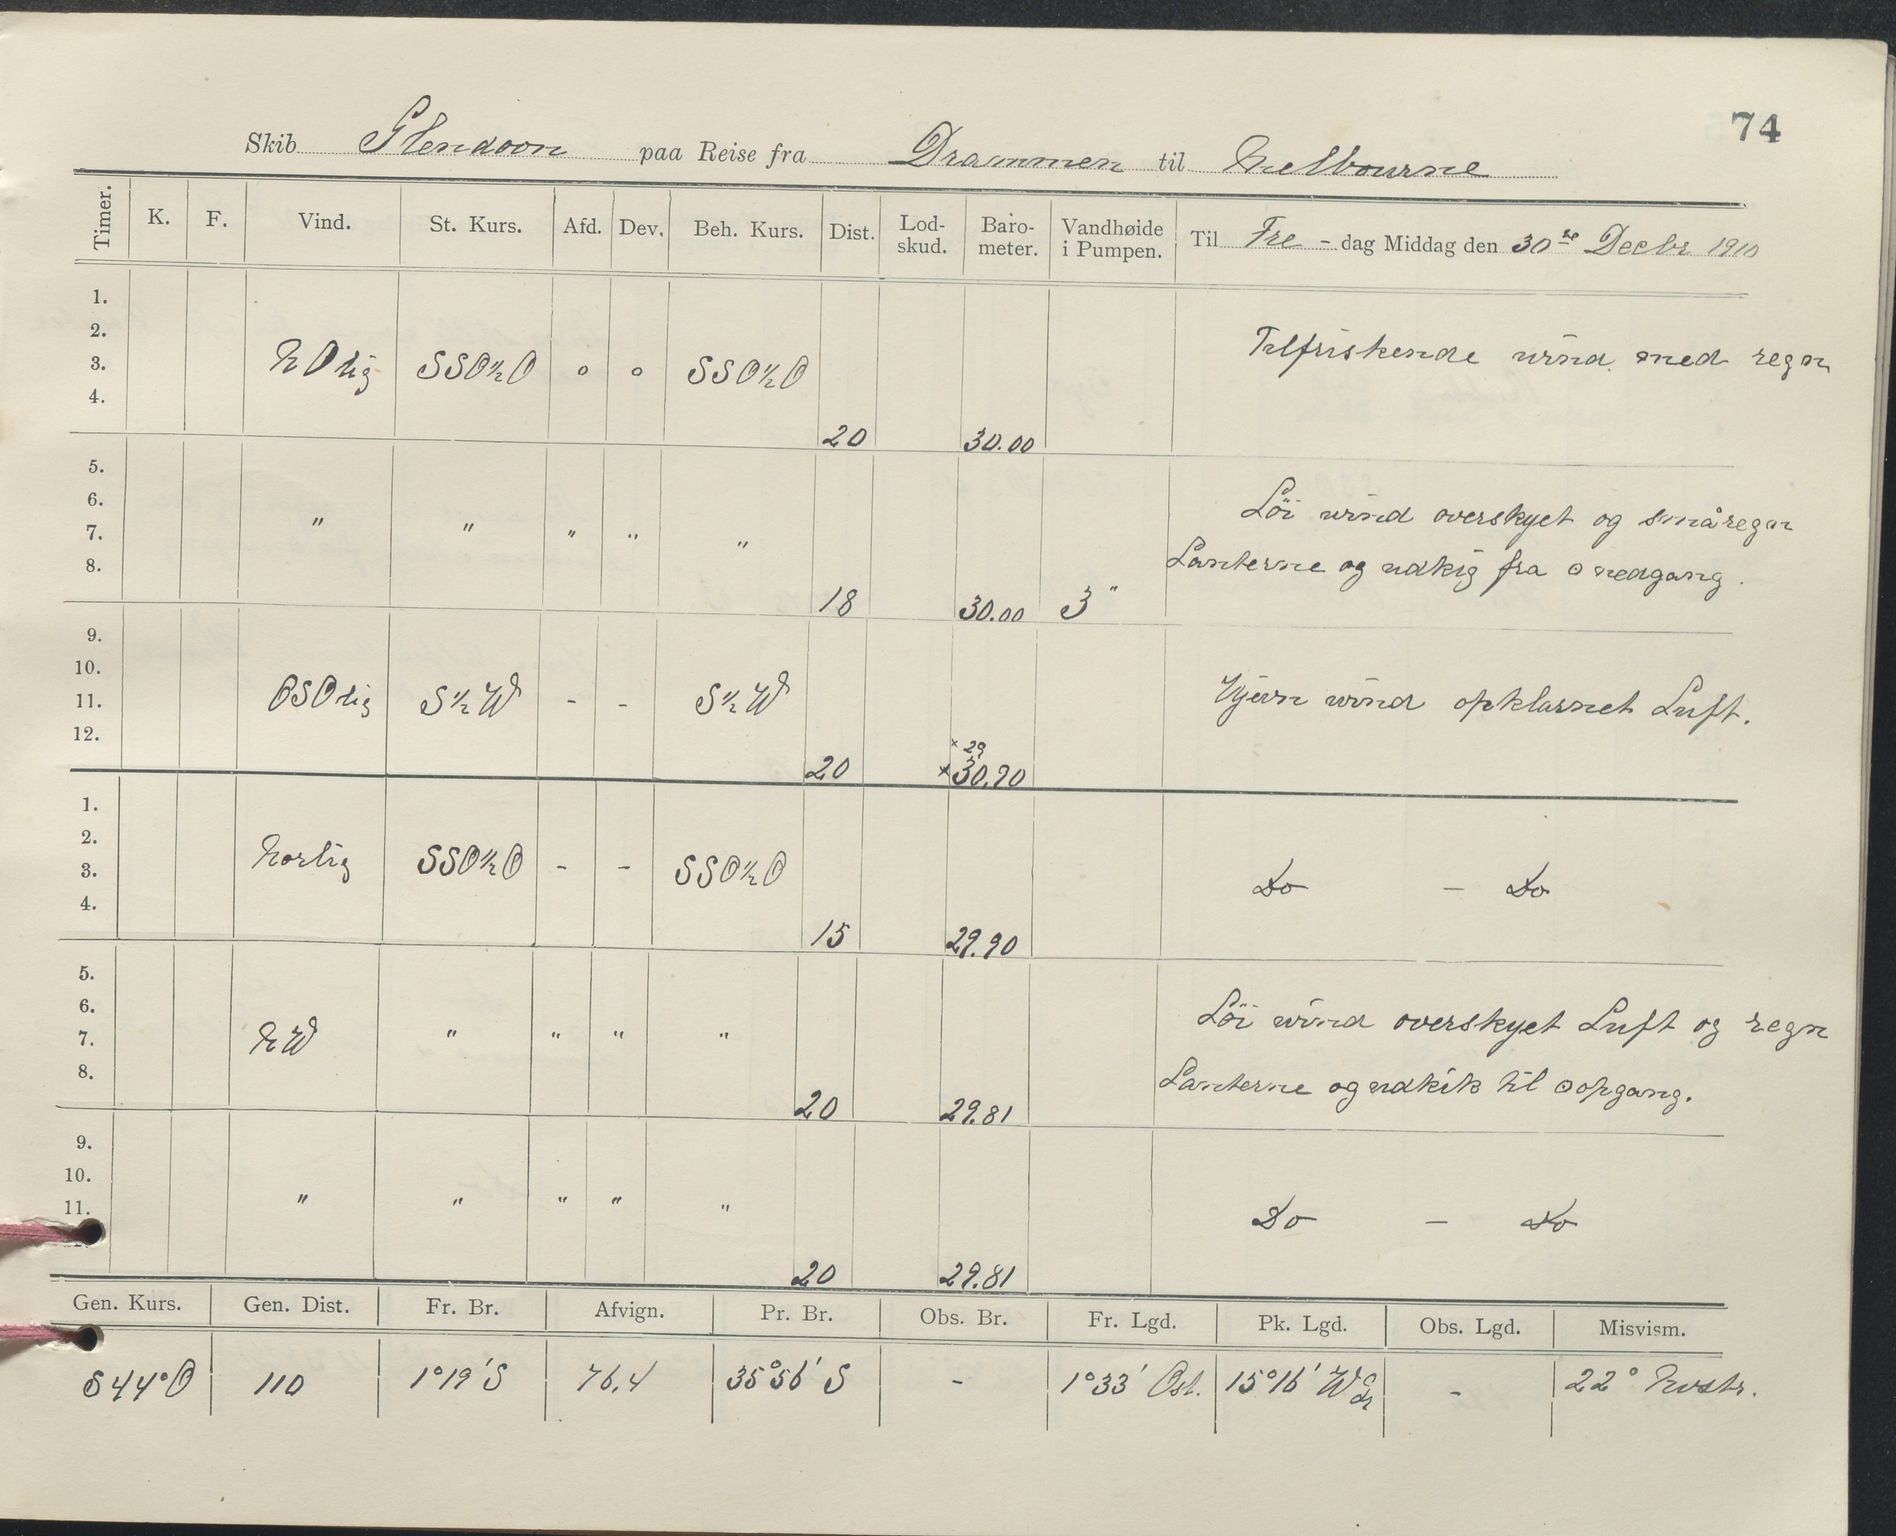 74
Skib Glendoon paa Reise fra Drammen til Melbourne
Timer. K. F. Vind. St. Kurs. Afd. Dev. Beh. Kurs. Dist. Lod-skud. Baro-meter. Vandhøide i Pumpen. Til Fre - dag Middag den 30te Decbr 1910
1.
2.
3. NOlig SSO½O o o SSO½O Tilfriskende wind med regn
4.
20 30.00
5.
6.
7. " " " " " Löi wind overskyet og småregn
8. Lanterne og udkig fra ⊙ nedgang.
18 30.00 3"
9.
10.
11. OSOlig S½W - - S½W Wjevn wind opklarnet Luft.
12.
× 29
20 × 30.90
1.
2.
3. Norlig SSO½O - - SSO½O Do - Do
4.
15 29.90
5.
6.
7. NW " " " " Löi wind overskyet Luft og regn
8. Lanterne og udkik til ⊙ opgang.
20 29.81
9.
10.
11. " " " " " Do - Do
20 29.81
Gen. Kurs. Gen. Dist. Fr. Br. Afvign. Pr. Br. Obs. Br. Fr. Lgd. Pk. Lgd. Obs. Lgd. Misvism.
S 44° O 110 1°19' S 76,4 35°56' S - 1°33' Ost. 15°16' W - 22°